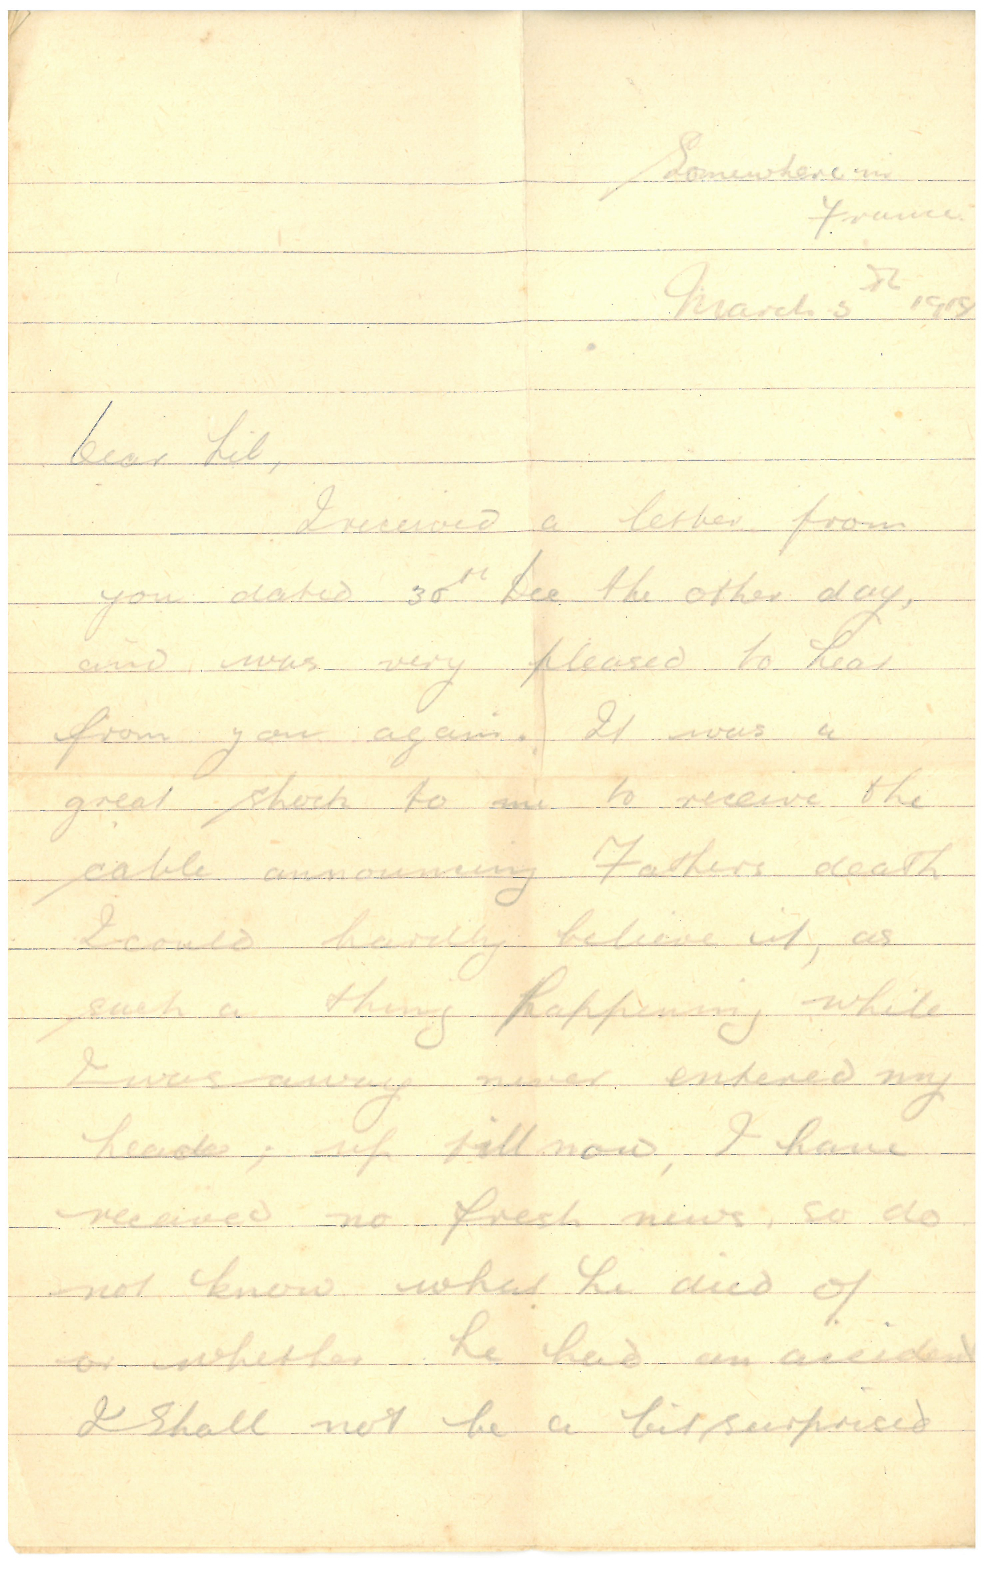 Somewhere in
France
March 5th 1918
Dear Lil,
I received a letter from
you dated 30th Dec the other day,
and was very pleased to hear
from you again. It was a
great shock to me to receive the
cable announcing Fathers death
I could hardly believe it, as
such a thing happening while
I was away never entered my
head; up till now, I have
received no fresh news, so do
not know what he died of
or whether he had an accident
I shall not be a bit surprised